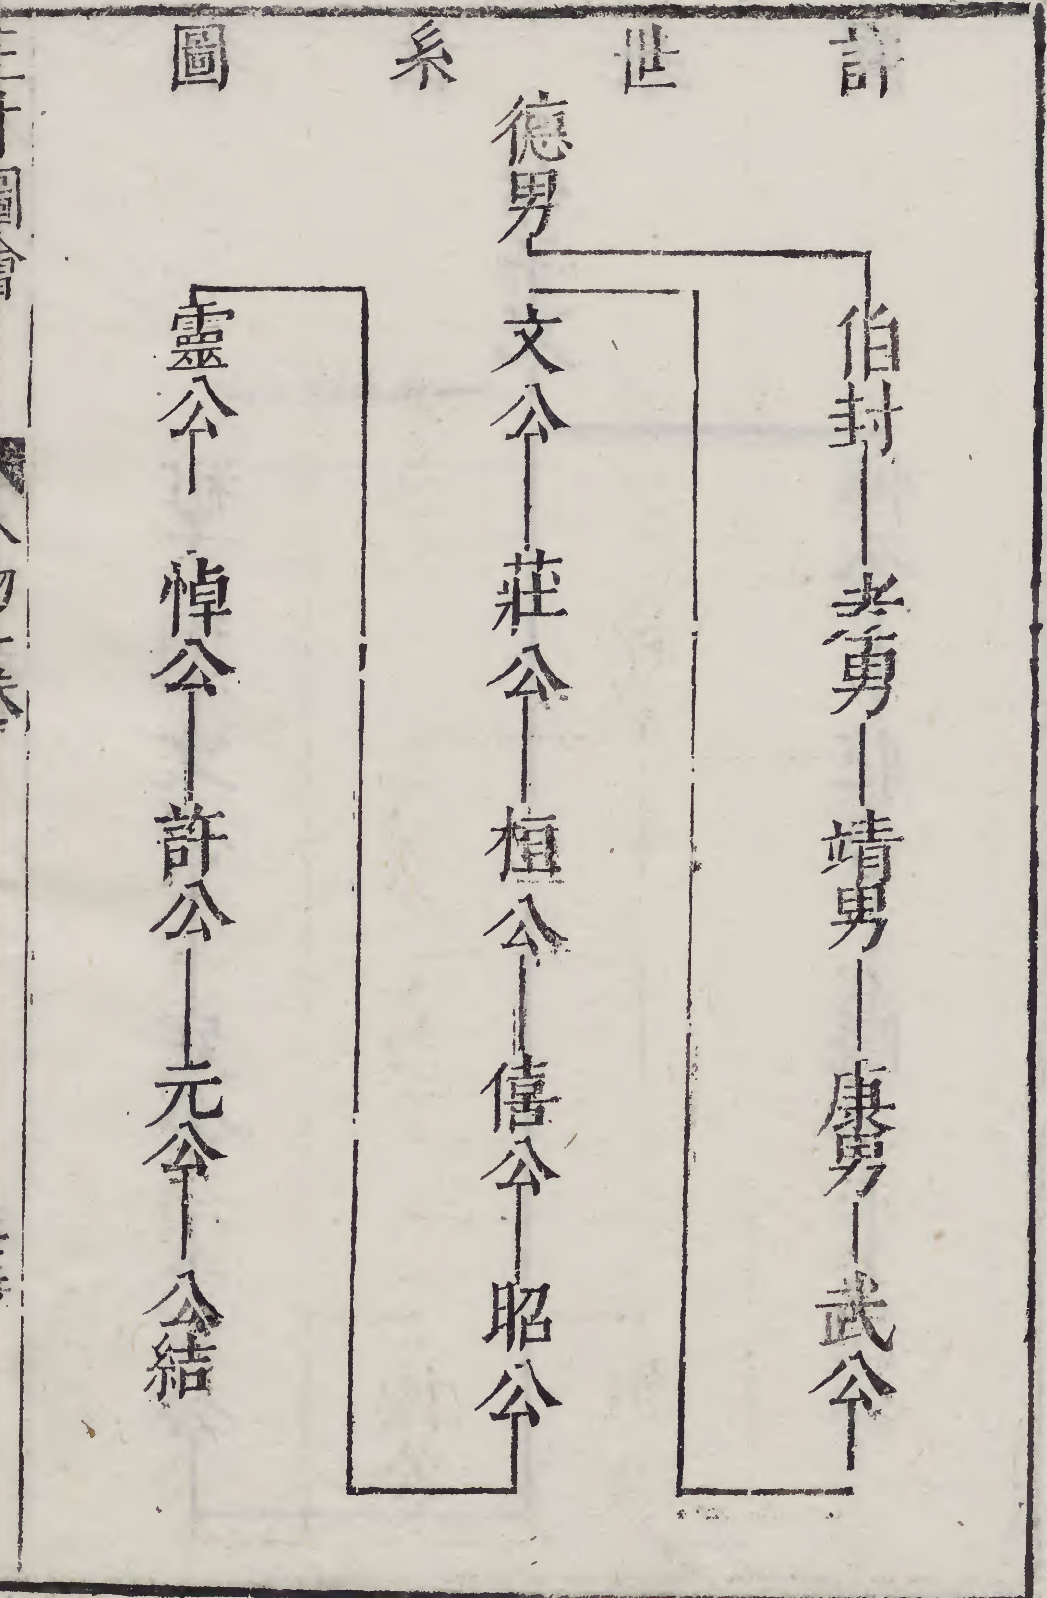 許世系圖
德男
伯封
孝男
靖男
康男
武公
文公
莊公
桓公
僖公
昭公
靈公
悼公
許公
元公
公結
圖會
人物十卷